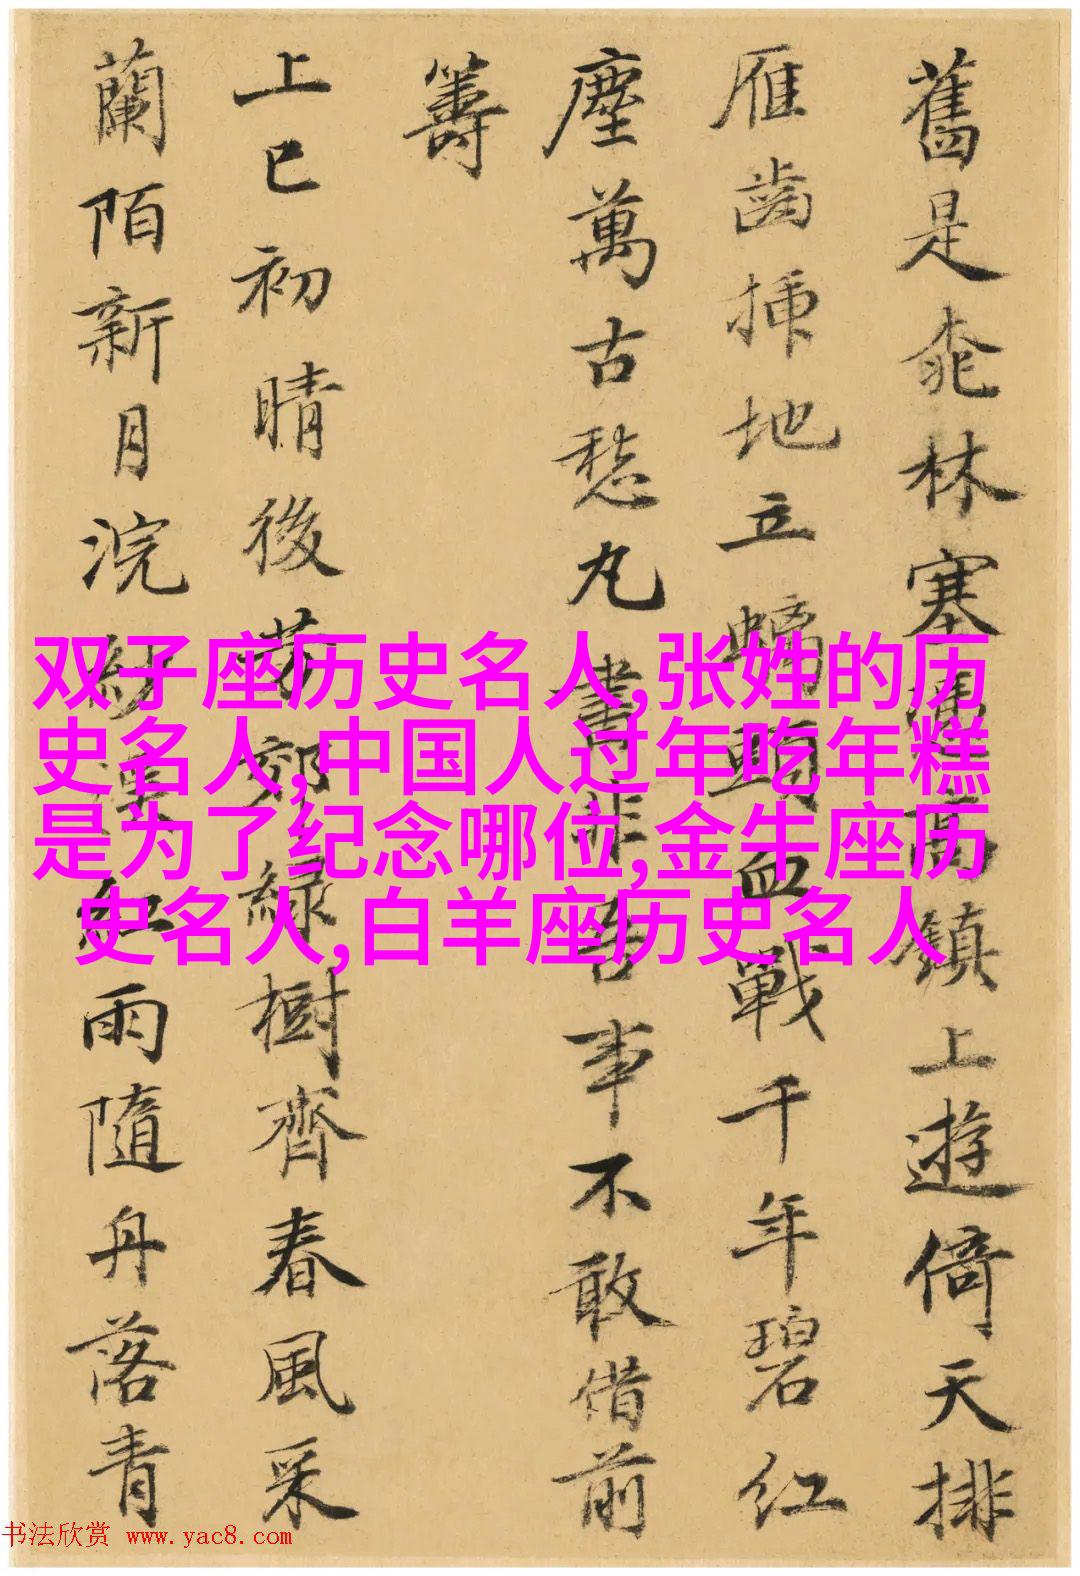 舊是桃林塞高鎮上遊倚天排
雁齒插地立螭頭血戰千年碧紅
塵萬古愁丸書非吾事不敢借前
籌
上巳初晴後芳郊緑樹齊春風采
蘭陌新月浣紗溪紅雨隨舟落青
双子座历史名人,张姓的历
史名人,中国人过年吃年糕
是为了纪念哪位,金牛座历
史名人,白羊座历史名人
书法欣赏 www.yac8.com